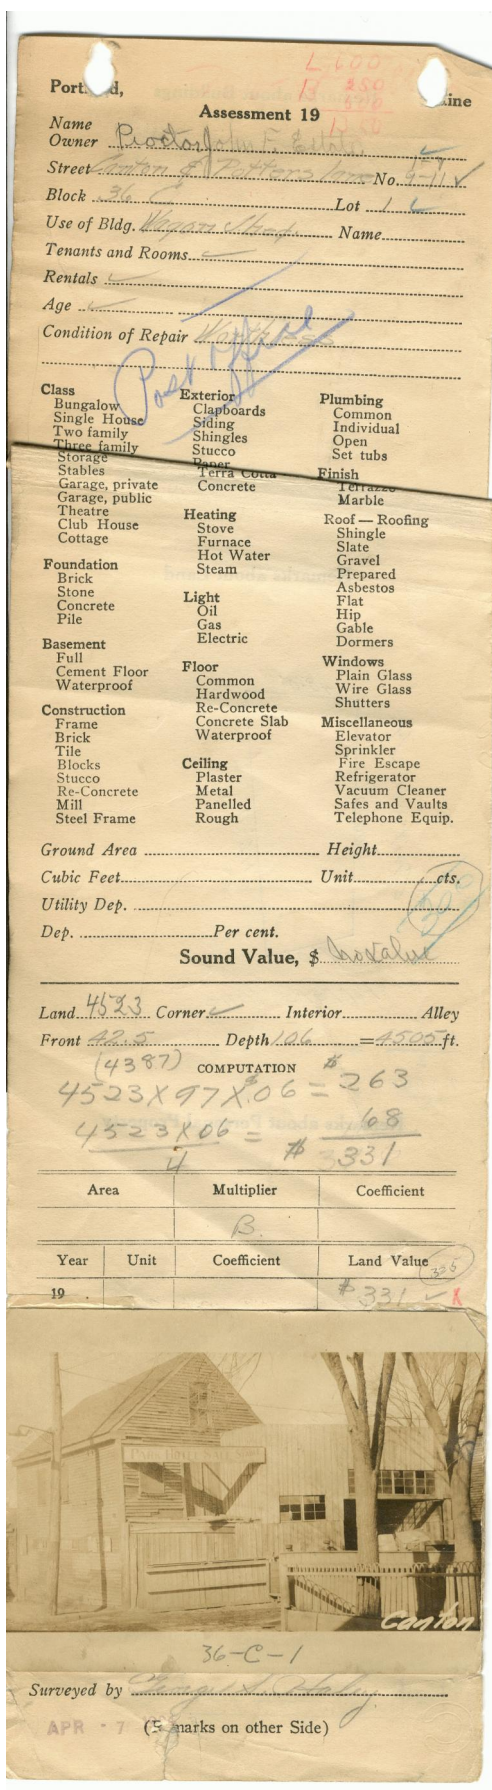 L 600
B 250
Portland, Maine
Assessment 19
Name
Owner Proctor, John F. Estate
Street Canton & Potters Lane No. 9-11 ✓
Block 36 C Lot 1
Use of Bldg. Wagon Shed. Name
Tenants and Rooms ✓
Rentals ✓
Age ✓
Condition of Repair Worthless
Post Office
Class
Bungalow
Single House
Two family
Three family
Storage
Stables
Garage, private
Garage, public
Theatre
Club House
Cottage
Foundation
Brick
Stone
Concrete
Pile
Basement
Full
Cement Floor
Waterproof
Construction
Frame
Brick
Tile
Blocks
Stucco
Re-Concrete
Mill
Steel Frame
Exterior
Clapboards
Siding
Shingles
Stucco
Paper
Terra Cotta
Concrete
Heating
Stove
Furnace
Hot Water
Steam
Light
Oil
Gas
Electric
Floor
Common
Hardwood
Re-Concrete
Concrete Slab
Waterproof
Ceiling
Plaster
Metal
Panelled
Rough
Plumbing
Common
Individual
Open
Set tubs
Finish
Terrazzo
Marble
Roof — Roofing
Shingle
Slate
Gravel
Prepared
Asbestos
Flat
Hip
Gable
Dormers
Windows
Plain Glass
Wire Glass
Shutters
Miscellaneous
Elevator
Sprinkler
Fire Escape
Refrigerator
Vacuum Cleaner
Safes and Vaults
Telephone Equip.
Ground Area Height
Cubic Feet Unit cts.
Utility Dep.
Dep. Per cent.
Sound Value, $ No Value
Land 4523 Corner ✓ Interior Alley
Front 42.5 Depth 106 = 4505 ft.
(4387) COMPUTATION
4523 X 97 X .06 = $ 263
4523 X 06 = 68
4 $ 331
Area Multiplier Coefficient
B
Year Unit Coefficient Land Value
335
19 $ 331 ✓ K
Canton
36-C-1
Surveyed by George S. Haley
APR - 7
(Remarks on other Side)